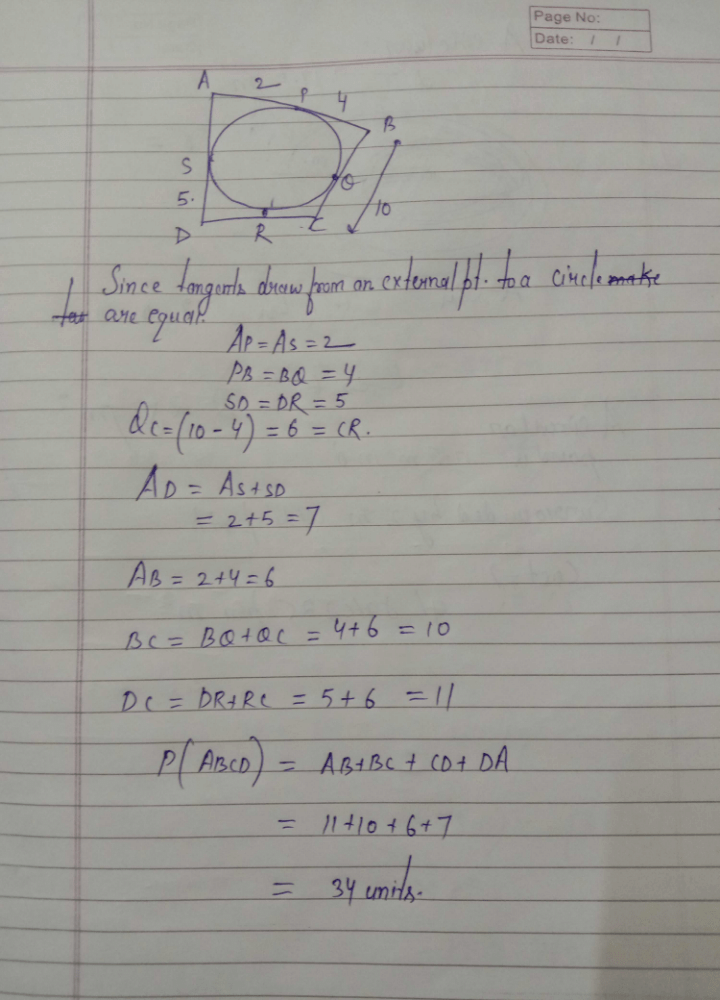 Page No:
Date: / /
A 2 P 4 B
S
Q
5.
10
D R C
Since tangents draw from an external pt. to a circle make
are equal.
AP = AS = 2
PB = BQ = 4
SD = DR = 5
QC = (10 - 4) = 6 = CR.
AD = AS + SD
= 2 + 5 = 7
AB = 2 + 4 = 6
BC = BQ + QC = 4 + 6 = 10
DC = DR + RC = 5 + 6 = 11
P(ABCD) = AB + BC + CD + DA
= 11 + 10 + 6 + 7
= 34 units.